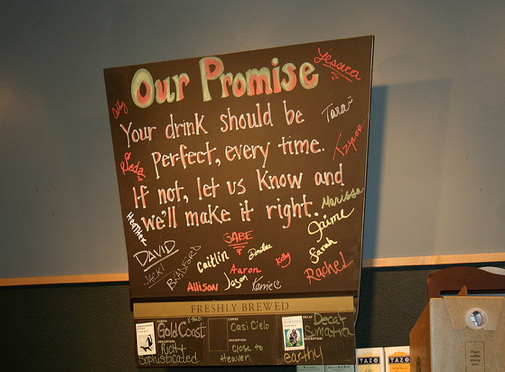 Our Promise
Jessica
Tara
Your drink should be
perfect, every time.
If not, let us know and
we'll make it right.
Marissa
Heather
Jaime
DAVID
GABE
Sarah
JACKI
BRADFORD
Caitlin
Dorothea
Kelly
Aaron
Jason
Rachel
Allison
FRESHLY BREWED
Gold Coast
Rich +
Sophisticated
Casi Cielo
Close to
Heaven
Decaf
Sumatra
earthy
TAZO
TAZO